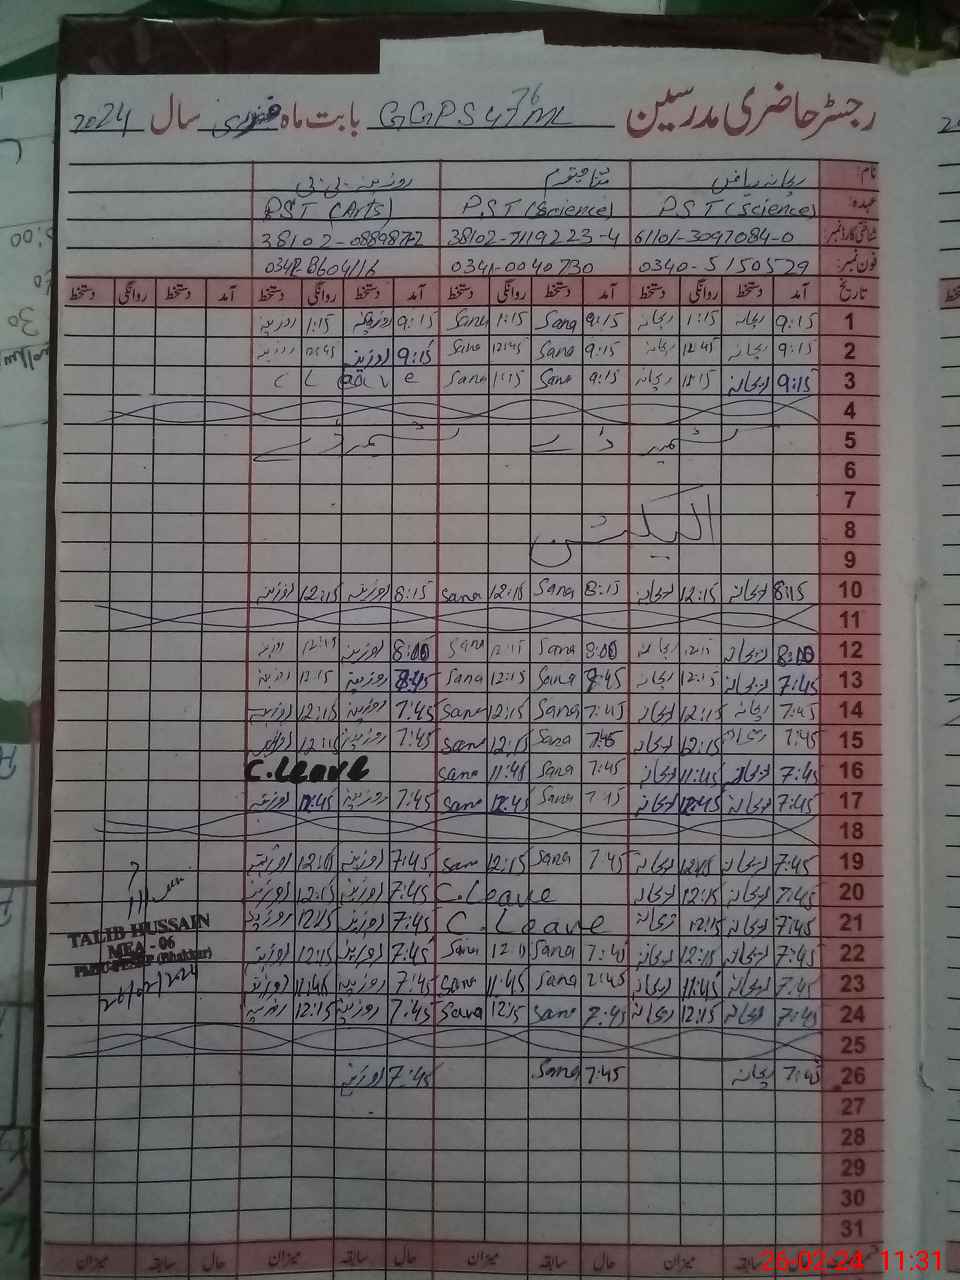 رجسٹر حاضری مدرسین GGPS 47 ML 76 بابت ماہ فروری سال 2024
نام: ریحانہ ریاض
عہدہ: PST (Science) PST (Science) PST (Arts)
شناختی کارڈ نمبر: 61101-3097084-0 38102-7119223-4
فون نمبر: 0340-5150529 0341-0040730
تاریخ آمد دستخط روانگی دستخط آمد دستخط روانگی دستخط آمد دستخط روانگی دستخط آمد دستخط روانگی دستخط
1 9:15 ریحانہ 1:15 ریحانہ 9:15 Sana 1:15 Sana 9:15 روزینہ 1:15 روزینہ
2 9:15 ریحانہ 12:45 ریحانہ 9:15 Sana 12:45 Sana 9:15 روزینہ 12:45 روزینہ
3 9:15 ریحانہ ریحانہ 9:15 Sana 1:15 Sana C Leave
4
5 کشمیر ڈے کشمیر ڈے
6
7
8 الیکشن
9
10 8:15 ریحانہ 12:15 ریحانہ 8:15 Sana 12:15 Sana 8:15 روزینہ 12:15 روزینہ
11
12 8:00 ریحانہ 12:15 ریحانہ 8:00 Sana 12:15 Sana 8:00 روزینہ 12:15 روزینہ
13 7:45 ریحانہ 12:15 ریحانہ Sana 12:15 Sana روزینہ 12:15 روزینہ
14 7:45 ریحانہ 12:15 ریحانہ 7:45 Sana 12:15 Sana 7:45 روزینہ 12:15 روزینہ
15 7:45 ریحانہ 12:15 ریحانہ 7:45 Sana 12:15 Sana 7:45 روزینہ 12:15 روزینہ
16 7:45 ریحانہ 11:45 ریحانہ 7:45 Sana 11:45 Sana C.Leave
17 7:45 ریحانہ 12:45 ریحانہ 7:45 Sana 12:45 Sana 7:45 روزینہ 12:45 روزینہ
18
19 7:45 ریحانہ 12:15 ریحانہ 7:45 Sana 12:15 Sana 7:45 روزینہ روزینہ
20 7:45 ریحانہ 12:15 ریحانہ C.Leave 7:45 روزینہ 12:15 روزینہ
21 7:45 ریحانہ 12:15 ریحانہ C.Leave 7:45 روزینہ 12:15 روزینہ
TALIB HUSSAIN
MEA - 06
22 7:45 ریحانہ 12:15 ریحانہ 7:45 Sana Sana 7:45 روزینہ 12:15 روزینہ
(Bhakkar)
23 7:45 ریحانہ 11:45 ریحانہ 7:45 Sana 11:45 Sana 7:45 روزینہ 11:45 روزینہ
26/02/24
24 7:45 ریحانہ 12:15 ریحانہ 7:45 Sana 12:15 Sana 7:45 روزینہ 12:15 روزینہ
25
26 7:45 ریحانہ 7:45 Sana 7:45 روزینہ
27
28
29
30
31
حال سابقہ میزان حال سابقہ میزان حال سابقہ میزان حال سابقہ میزان
26-02-24 11:31